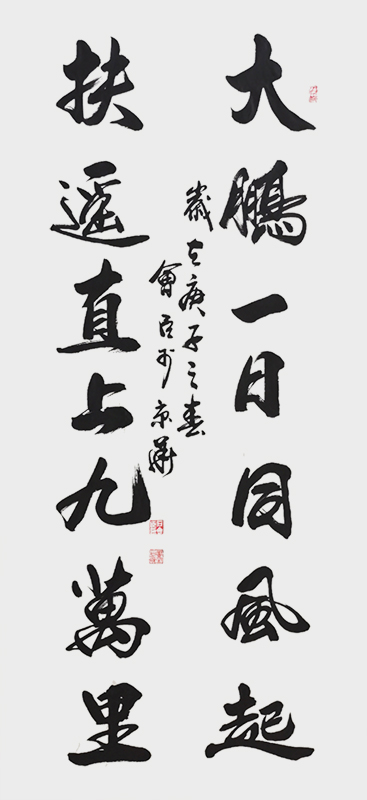 大鵬一日同風起
扶遥直上九萬里
歲在庚子之春
會臣於京華